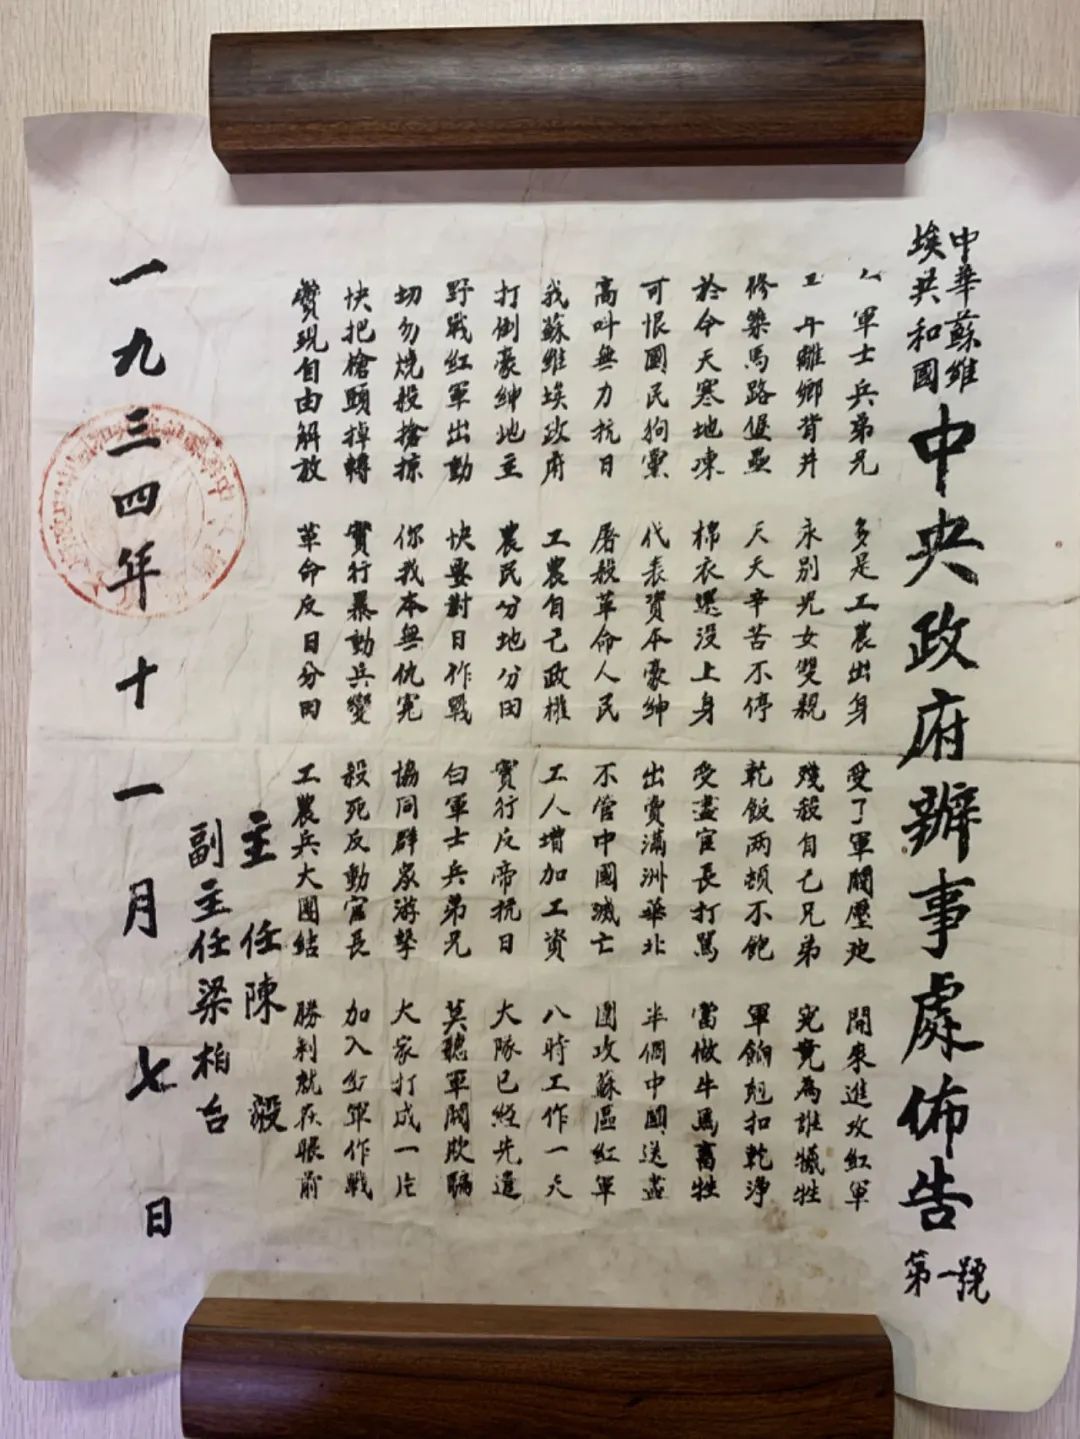 中華蘇維
埃共和國
中央政府辦事處佈告
第一號
軍士兵弟兄 多是工農出身 受了軍閥壓迫 開來進攻紅軍
離鄉背井 永别児女雙親 殘殺自己兄弟 究竟為誰犧牲
修築馬路堡壘 天天辛苦不停 乾飯两頓不飽 軍餉尅扣乾淨
於今天寒地凍 棉衣還没上身 受盡官長打罵 當做牛馬畜牲
可恨國民狗黨 代表資本豪紳 出賣滿洲華北 半個中國送盡
高叫無力抗日 屠殺革命人民 不管中國滅亡 圍攻蘇區紅軍
我蘇維埃政府 工農自己政權 工人增加工資 八時工作一天
打倒豪紳地主 農民分地分田 實行反帝抗日 大隊已經先遣
野戰紅軍出動 快要對日作戰 白軍士兵弟兄 莫聽軍閥欺騙
切勿燒殺搶掠 你我本無仇冤 協同群眾游擊 大家打成一片
快把槍頭掉轉 實行暴動兵變 殺死反動官長 加入紅軍作戰
實現自由解放 革命反日分田 工農兵大團結 勝利就在眼前
主任陳毅
副主任梁柏台
一九三四年十一月七日